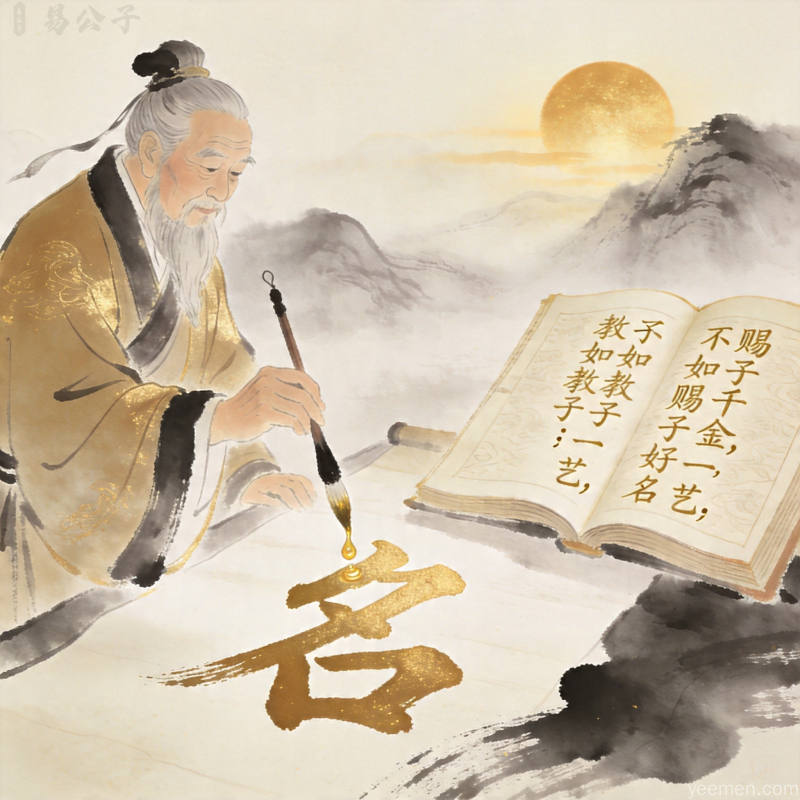 易公子
赐子千金,一,艺;
不如赐子好名
子如教子一艺,
教如教子;
名
yeemen.com